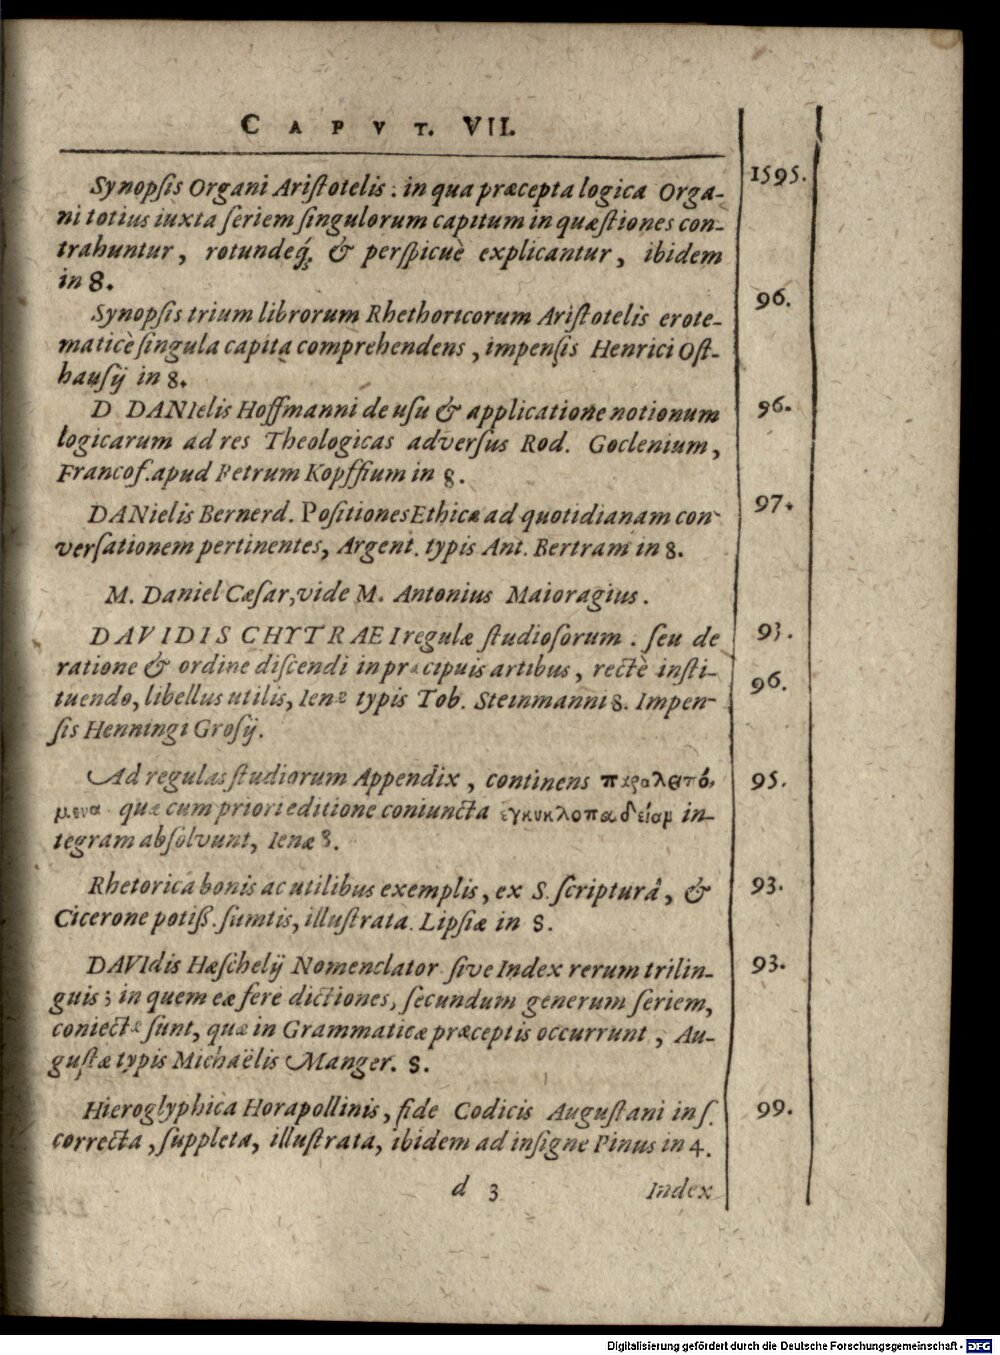 CAPVT. VII.
Synopſis Organi Ariſtotelis : in qua præcepta logica Orga- 1595.
ni totius iuxta ſeriem ſingulorum capitum in quæſtiones con-
trahuntur, rotundeq́; & perſpicuè explicantur, ibidem
in 8.
Synopſis trium librorum Rhethoricorum Ariſtotelis erote- 96.
maticè ſingula capita comprehendens, impenſis Henrici Oſt-
hauſij in 8.
D DANIelis Hoffmanni de uſu & applicatione notionum 96.
logicarum ad res Theologicas adverſus Rod. Goclenium,
Francof. apud Petrum Kopffium in 8.
DANielis Bernerd. Poſitiones Ethicæ ad quotidianam con- 97.
verſationem pertinentes, Argent. typis Ant. Bertram in 8.
M. Daniel Cæſar, vide M. Antonius Maioragius.
DAVIDIS CHYTRAEI regulæ ſtudioſorum : ſeu de 93.
ratione & ordine diſcendi in præcipuis artibus, rectè inſti-
tuendo, libellus utilis, Ienæ typis Tob. Steinmanni 8. Impen- 96.
ſis Henningi Groſij.
Ad regulas ſtudiorum Appendix, continens παραλειπό- 95.
μενα quæ cum priori editione coniuncta ἐγκυκλοπαιδείαμ in-
tegram abſolvunt, Ienæ 8.
Rhetorica bonis ac utilibus exemplis, ex S. ſcripturâ, & 93.
Cicerone potiß. ſumtis, illuſtrata. Lipſiæ in 8.
DAVIdis Hæſchelij Nomenclator ſive Index rerum trilin- 93.
guis; in quem eæ fere dictiones, ſecundum generum ſeriem,
coniectæ ſunt, quæ in Grammaticæ præceptis occurrunt, Au-
guſtæ typis Michaëlis Manger. 8.
Hieroglyphica Horapollinis, fide Codicis Auguſtani in ſ. 99.
correcta, ſuppleta, illuſtrata, ibidem ad inſigne Pinus in 4.
d 3 Index
Digitalisierung gefördert durch die Deutsche Forschungsgemeinschaft - DFG